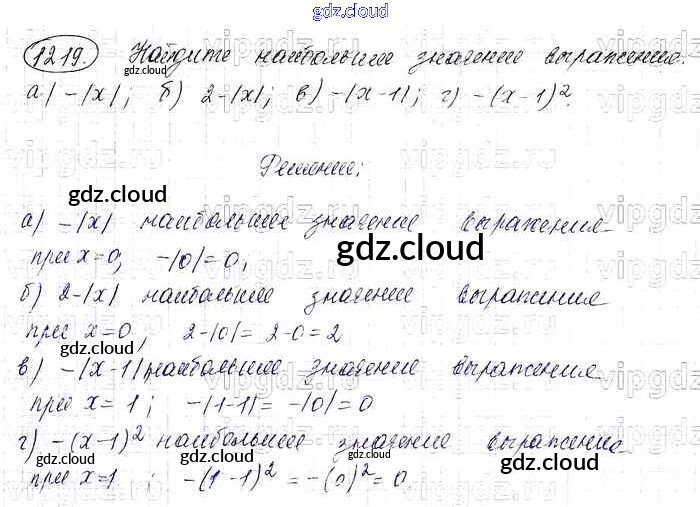 gdz.cloud
1219. Найдите наибольшие значение выражения.
а) -|x|; б) 2-|x|; в) -|x-1|; г) -(x-1)².
Решение:
а) -|x| наибольшее значение выражения
при x=0, -|0|=0,
б) 2-|x| наибольшее значение выражения
при x=0, 2-|0|= 2-0=2
в) -|x-1| наибольшее значение выражения
при x= 1; -|1-1|= -|0|=0
г) -(x-1)² наибольшее значение выражения
при x=1; -(1-1)²=-(0)²=0.
gdz.cloud
gdz.cloud
gdz.cloud
gdz.cloud
gdz.cloud
gdz.cloud
gdz.cloud
gdz.cloud
vipgdz
vipgdz